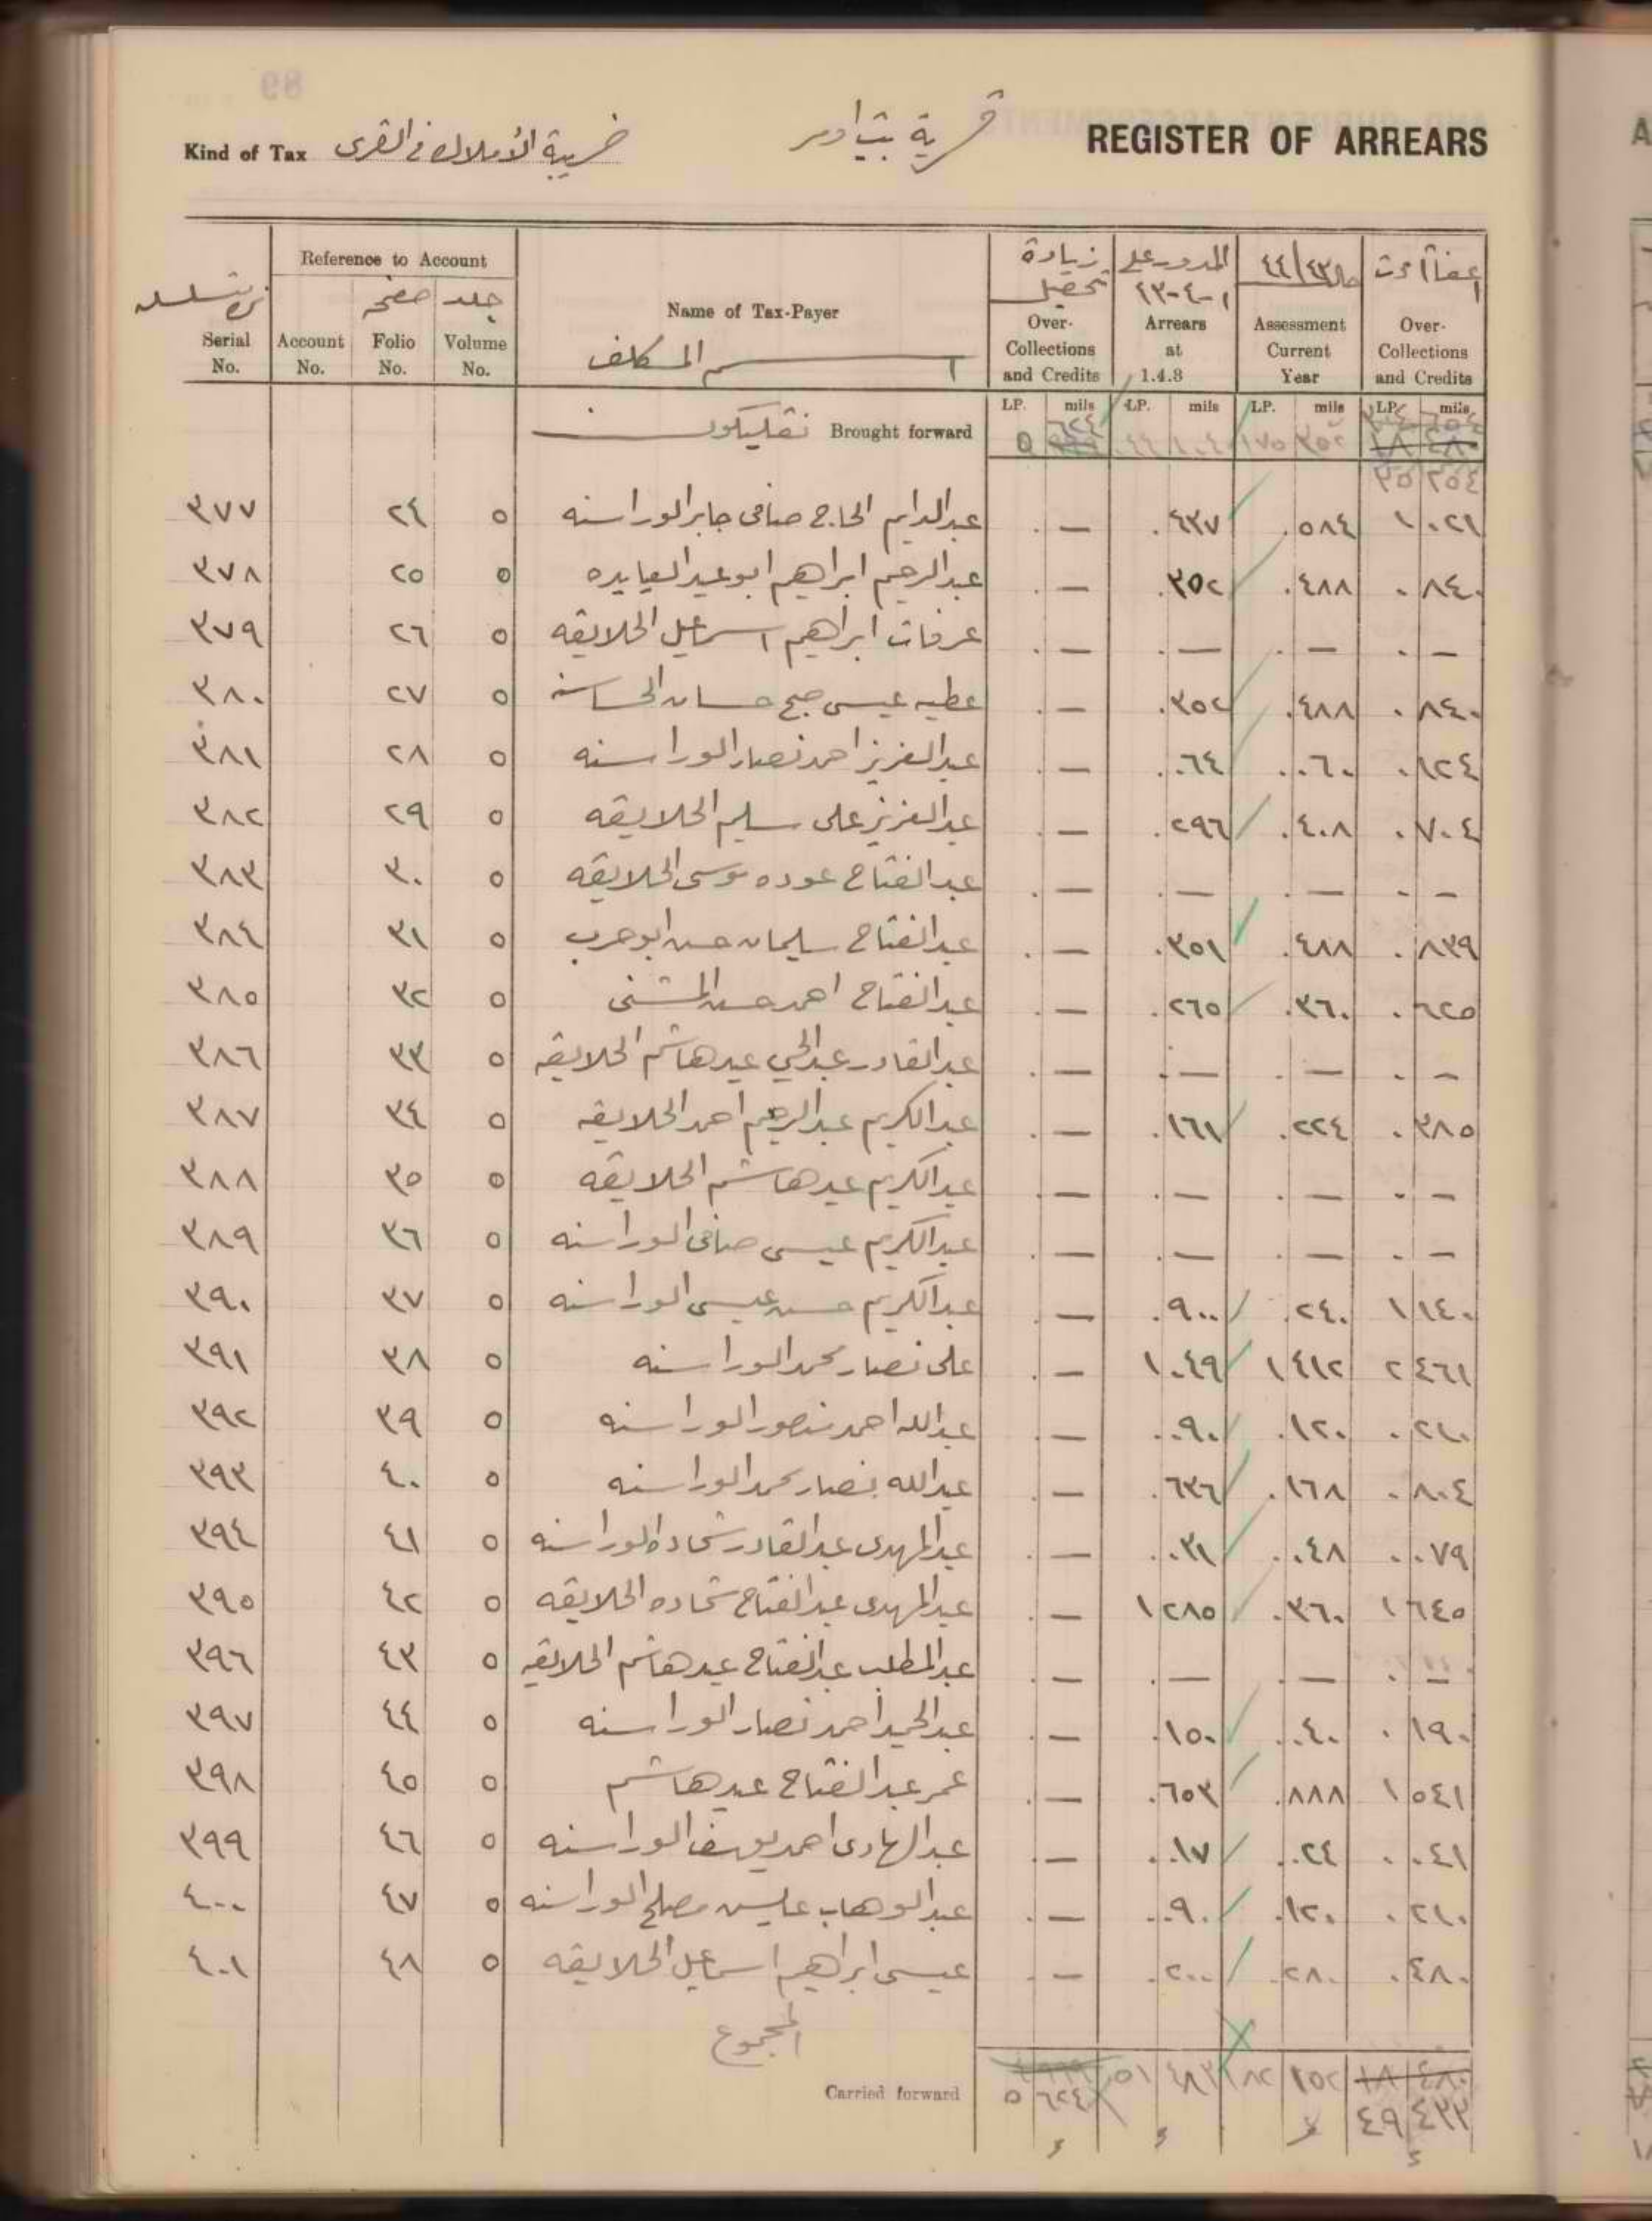 REGISTER OF ARREARS
قرية بيت
Kind of Tax ضريبة الأملاك في القرى
Reference to Account
Serial No. Account No. Folio No. صفحه Volume No. جلد
Name of Tax-Payer
اسم المكلف
زيادة تحصيل Over-Collections and Credits
المدور على ١-٤-٤٣ Arrears at 1.4.3
٤٤/٤٣ Assessment Current Year
Over-Collections and Credits
LP. mils LP. mils LP. mils LP. mils
Brought forward
٣٧٧ ٢٤ ٥ عبد الدايم الحاج صافي جابر الوراسنه . — . ٤٣٧ . ٥٨٤ ١ ٠٢١
٣٧٨ ٢٥ ٥ عبد الرحيم ابراهيم ابو عيد العبايده . — . ٣٥٢ . ٤٨٨ . ٨٤٠
٣٧٩ ٢٦ ٥ عرفات ابراهيم اسماعيل الحلايقه . — . — . — . —
٣٨٠ ٢٧ ٥ عطيه عيسى صبح حسان الحساسنه . — . ٣٥٢ . ٤٨٨ . ٨٤٠
٣٨١ ٢٨ ٥ عبد العزيز احمد نصار الوراسنه . — . ٠٦٤ . ٠٦٠ . ١٢٤
٣٨٢ ٢٩ ٥ عبد العزيز علي سليم الحلايقه . — . ٢٩٦ . ٤٠٨ . ٧٠٤
٣٨٣ ٣٠ ٥ عبد الفتاح عوده موسى الحلايقه . — . — . — . —
٣٨٤ ٣١ ٥ عبد الفتاح سليمان حسن ابو حرب . — . ٣٥١ . ٤٨٨ . ٨٣٩
٣٨٥ ٣٢ ٥ عبد الفتاح احمد حسن المشني . — . ٢٦٥ . ٣٦٠ . ٦٢٥
٣٨٦ ٣٣ ٥ عبد القادر عبد الحي عيد هاشم الحلايقه . — . — . — . —
٣٨٧ ٣٤ ٥ عبد الكريم عبد الرحيم احمد الحلايقه . — . ١٦١ . ٢٢٤ . ٣٨٥
٣٨٨ ٣٥ ٥ عبد الكريم عيد هاشم الحلايقه . — . — . — . —
٣٨٩ ٣٦ ٥ عبد الكريم عيسى صافي الوراسنه . — . — . — . —
٣٩٠ ٣٧ ٥ عبد الكريم حسن عيسى الوراسنه . — . ٩٠٠ . ٢٤٠ ١ ١٤٠
٣٩١ ٣٨ ٥ علي نصار محمد الوراسنه . — ١ ٠٤٩ ١ ٤١٢ ٢ ٤٦١
٣٩٢ ٣٩ ٥ عبد الله احمد منصور الوراسنه . — . ٠٩٠ . ١٢٠ . ٢١٠
٣٩٣ ٤٠ ٥ عبد الله نصار محمد الوراسنه . — . ٦٣٦ . ١٦٨ . ٨٠٤
٣٩٤ ٤١ ٥ عبد المهدي عبد القادر شحاده الوراسنه . — . ٠٣١ . ٠٤٨ . ٠٧٩
٣٩٥ ٤٢ ٥ عبد المهدي عبد الفتاح شحاده الحلايقه . — ١ ٢٨٥ . ٣٦٠ ١ ٦٤٥
٣٩٦ ٤٣ ٥ عبد المطلب عبد الفتاح عيد هاشم الحلايقه . — . — . — . —
٣٩٧ ٤٤ ٥ عبد الحميد احمد نصار الوراسنه . — . ١٥٠ . ٠٤٠ . ١٩٠
٣٩٨ ٤٥ ٥ عمر عبد الفتاح عيد هاشم . — . ٦٥٣ . ٨٨٨ ١ ٥٤١
٣٩٩ ٤٦ ٥ عبد الهادي احمد يوسف الوراسنه . — . ٠١٧ . ٠٢٤ . ٠٤١
٤٠٠ ٤٧ ٥ عبد الوهاب مصلح الوراسنه . — . ٠٩٠ . ١٢٠ . ٢١٠
٤٠١ ٤٨ ٥ عيسى ابراهيم اسماعيل الحلايقه . — . ٢٠٠ . ٢٨٠ . ٤٨٠
المجموع
Carried forward ٥ ٦٢٤ ٥١ ٤٨٣ ٨٢ ١٥٢ ١٨ ٤٨٠
٤٩ ٤٣٣